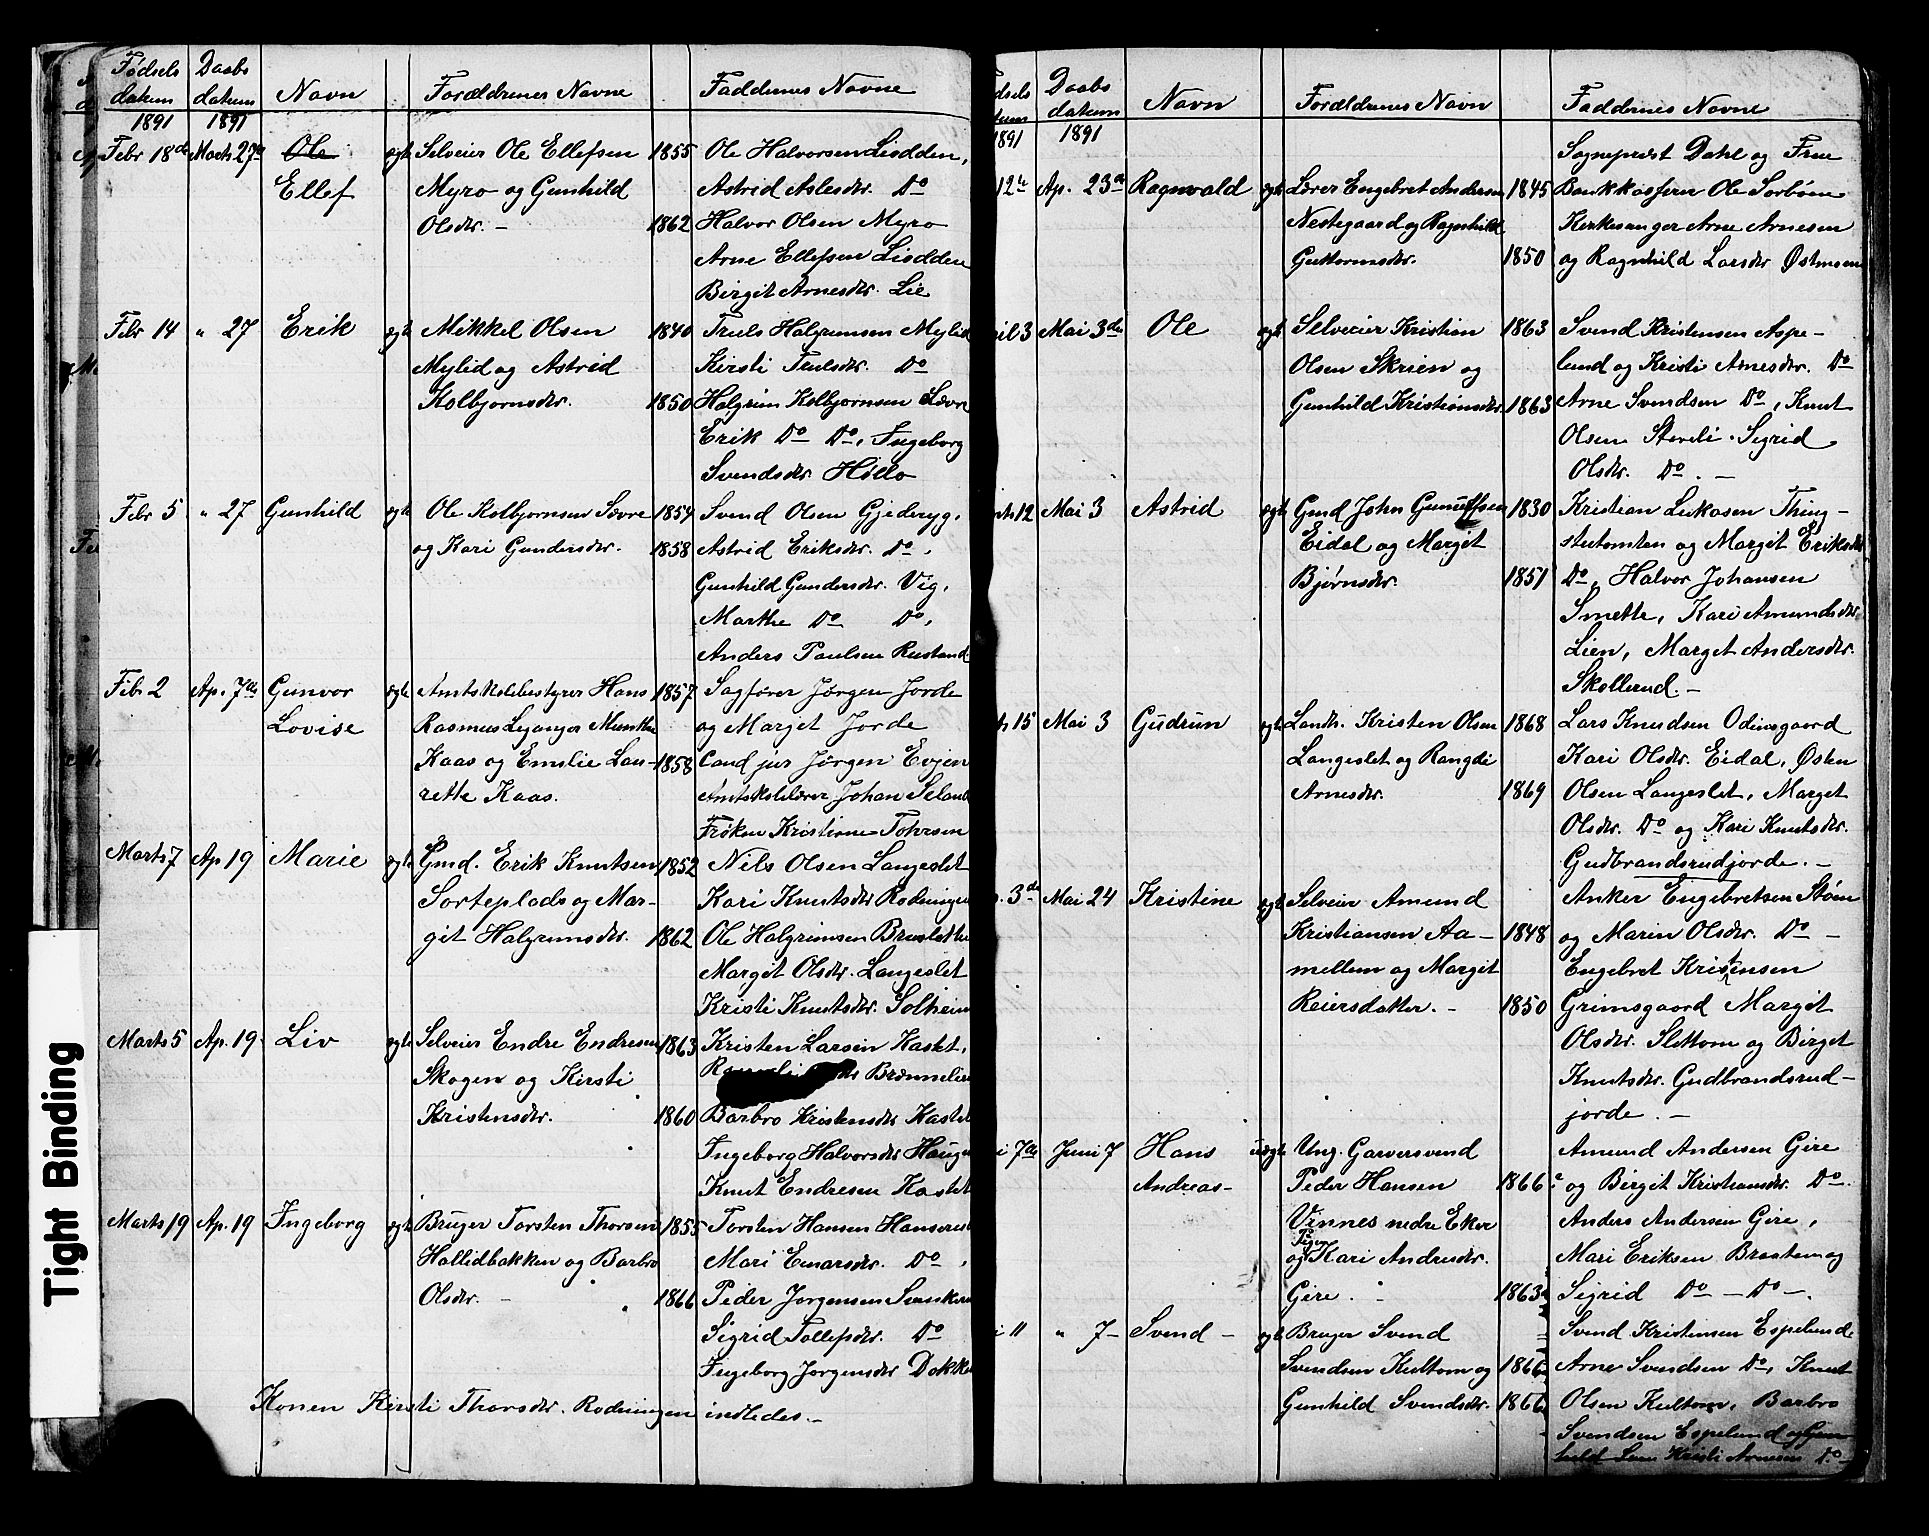 Fødsels datum 1891
Daabs datum 1891
Navn
Forældrenes Navne
Faddernes Navne
Febr 18de Marts 27de Ole Ellef ægte
Selveier Ole Ellefsen 1855
Myro og Gunhild
Olsdtr. - 1862
Ole Halvorsen Lisdden,
Astrid Aslesdtr. Do
Halvor Olsen Myro
Arne Ellefsen Lisdden
Birgit Arnesdtr. Lie
Febr 14 " 27 Erik ægte
Mikkel Olsen 1840
Mylid og Astrid
Kolbjornsdtr. 1850
Truls Halgrimsen Mylid
Kirsti Trulsdtr. Do
Halgrim Kolbjornsen Sævre
Erik Do Do, Ingeborg
Svendsdtr. Hollo
Febr 5 " 27 Gunhild ægte
Ole Kolbjornsen Sævre 1854
og Kari Gundersdtr. 1858
Svend Olsen Gjederyg,
Astrid Eriksdtr. Do,
Gunhild Gundersdtr. Vig,
Marthe Do Do,
Anders Paulsen Rustand
Febr 2 Ap. 7de Gunvor Lovise ægte
Amtsskolebestyrer Hans 1857
Rasmus Leganger Munthe
Kaas og Emilie Lau- 1858
rette Kaas.
Sagfører Jørgen Jorde
og Marget Jorde
Cand jur Jørgen Evjen
Amtsskolelærer Johan Seland
Frøken Kristiane Tohrsen
Marts 7 Ap 19 Marie ægte
Gmd. Erik Knutsen 1852
Sorteplads og Mar-
git Halgrimsdtr. 1862
Nils Olsen Langeslet
Kari Knutsdtr Rodningen
Ole Halgrimsen Bruslette
Margit Olsdtr. Langeslet
Kristi Knutsdtr. Solheim
Marts 5 Ap. 19 Liv ægte
Selveier Endre Endresen 1863
Skogen og Kirsti
Kristensdtr. 1860
Kristen Larsen Kastet,
Brænnelien
Barbro Kristensdtr Kastet
Ingeborg Halvorsdtr Haugen
Knut Endresen Kastet
Marts 19 Ap. 19 Ingeborg ægte
Bruger Torsten Thorsen 1855
Hallidbakken og Barbro
Olsdtr. - 1866
Torsten Hansen
Mari Einarsdtr. Do,
Peder Jorgensen
Sigrid Tollefsdtr. Do
Ingeborg Jorgensdtr Dokken
Konen Kirsti Thorsdtr. Rodningen indledes.-
dsels tum 1891
Daabs datum 1891
Navn
Forældrenes Navn
Faddernes Navne
12te Ap. 23de Ragnvald ægte
Lærer Engebret Andersen 1845
Nestegaard og Ragnhild
Guttormsdtr. 1850
Sogneprest Dahl og Frue
Bankkasserer Ole Sorbøen
Kirkesanger Arne Arnesen
og Ragnhild Larsdtr Østensen
ril 3 Mai 3de Ole ægte
Selveier Kristian 1863
Olsen Skrien og
Gunhild Kristiansdtr. 1863
Svend Kristensen Aspe-
lund og Kristi Arnesdtr. Do
Arne Svendsen Do, Knut
Olsen Staveli. Sigrid
Olsdtr. Do. -
ts 12 Mai 3 Astrid ægte
Gmd John Gunulfsen 1830
Eidal og Marget
Bjørnsdtr. 1851
Kristian Lukasen Thing-
stutomten og Margit Eriksdtr
Do, Halvor Johansen
Smette, Kari Amundsdtr.
Lien, Marget Andersdtr.
Skollerud. -
ts 15 Mai 3 Gudrun ægte
Landh. Kristen Olsen 1868
Langeslet og Rangdi
Arnesdtr. 1869
Lars Knudsen Odinsgaard
Kari Olsdtr. Eidal, Østen
Olsen Langeslet, Marget
Olsdtr. Do og Kari Knutsdtr.
Gudbrandsrudjorde. -
3de Mai 24 Kristine ægte
Selveier Amund
Kristiansen Aa- 1848
mellem og Margit
Reiersdatter. - 1850
Anker Engebretsen Støen
og Marin Olsdtr. Do -
Engebret Kristensen
Grimsgaard Margit
Olsdtr. Slettom og Birget
Knutsdtr. Gudbrandsrud-
jorde. -
i 7de Juni 7 Hans Andreas- uægte
Ung. Garversvend
Peder Hansen 1866
Vinnes nedre Eker
og Pigen Kari Andersdtr.
Gire. 1863
Amund Andersen Gire
og Birgit Kristiansdtr. Do.
Anders Andersen Gire,
Mari Eriksen Braaten og
Sigrid Do - Do -.
i 11 " 7- Svend - ægte
Bruger Svend
Svendsen Kultom og 1866
Gunhild Svendsdtr. 1866
Svend Kristensen Espelunde
Arne Svendsen Do, Knut
Olsen Kultom, Barbro
Svendsen Espelund og Gun
hild Kristi Arnesen Do
Tight Binding